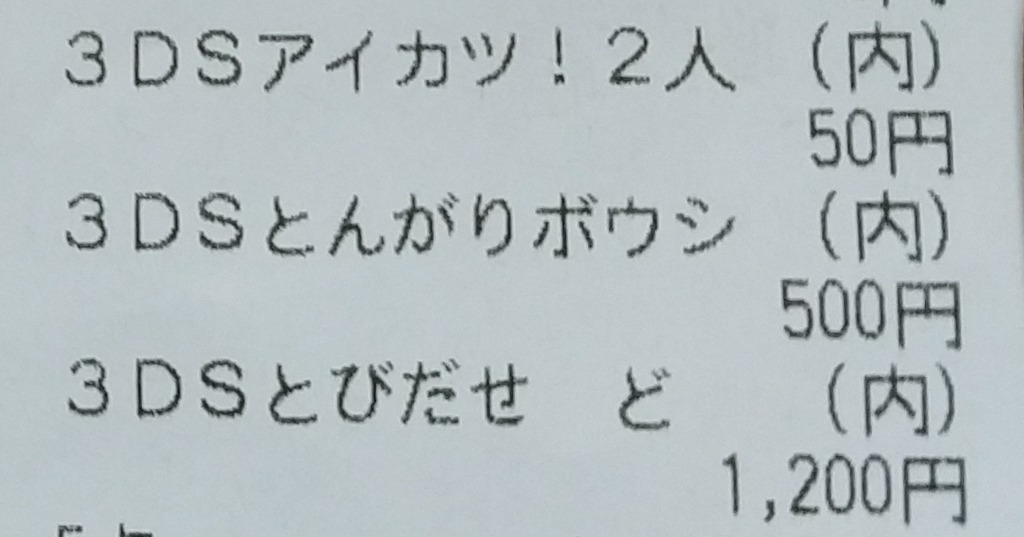 3DSアイカツ!2人 (内)
50円
3DSとんがりボウシ (内)
500円
3DSとびだせ ど (内)
1,200円